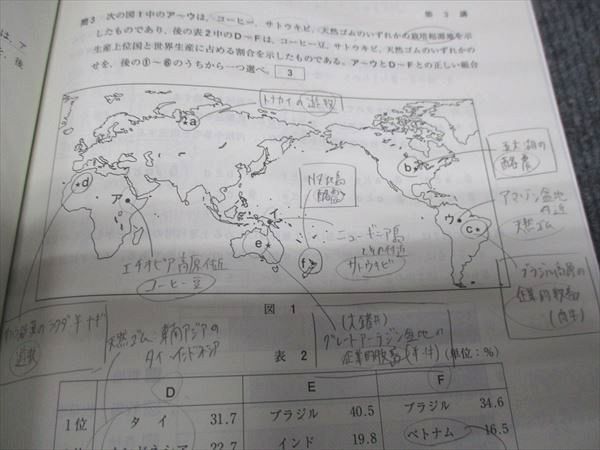 第 3 講
問3 次の図1中のア～ウは、コーヒー、サトウキビ、天然ゴムのいずれかの栽培起源地を示
したものであり、後の表2中のD～Fは、コーヒー豆、サトウキビ、天然ゴムのいずれかの
生産上位国と世界生産に占める割合を示したものである。ア～ウとD～Fとの正しい組合
せを、後の①～⑥のうちから一つ選べ。 3
トナカイの遊牧
a
五大湖の
酪農
b
d
ア
NZ北島
酪農
アマゾン盆地
付近
天然ゴム
イ
ウ
c
e
f
ニューギニア島
とその付近
サトウキビ
エチオピア高原付近
コーヒー豆
ブラジル高原の
企業的牧畜
(肉牛)
図 1
遊牧
天然ゴム:東南アジアの
タイ・インドネシア
(大鑽井)
グレートアーテジアン盆地の
企業的牧畜
表 2
(単位:%)
D E F
1位 タイ 31.7 ブラジル 40.5 ブラジル 34.6
インドネシア 22.7 インド 19.8 ベトナム 16.5